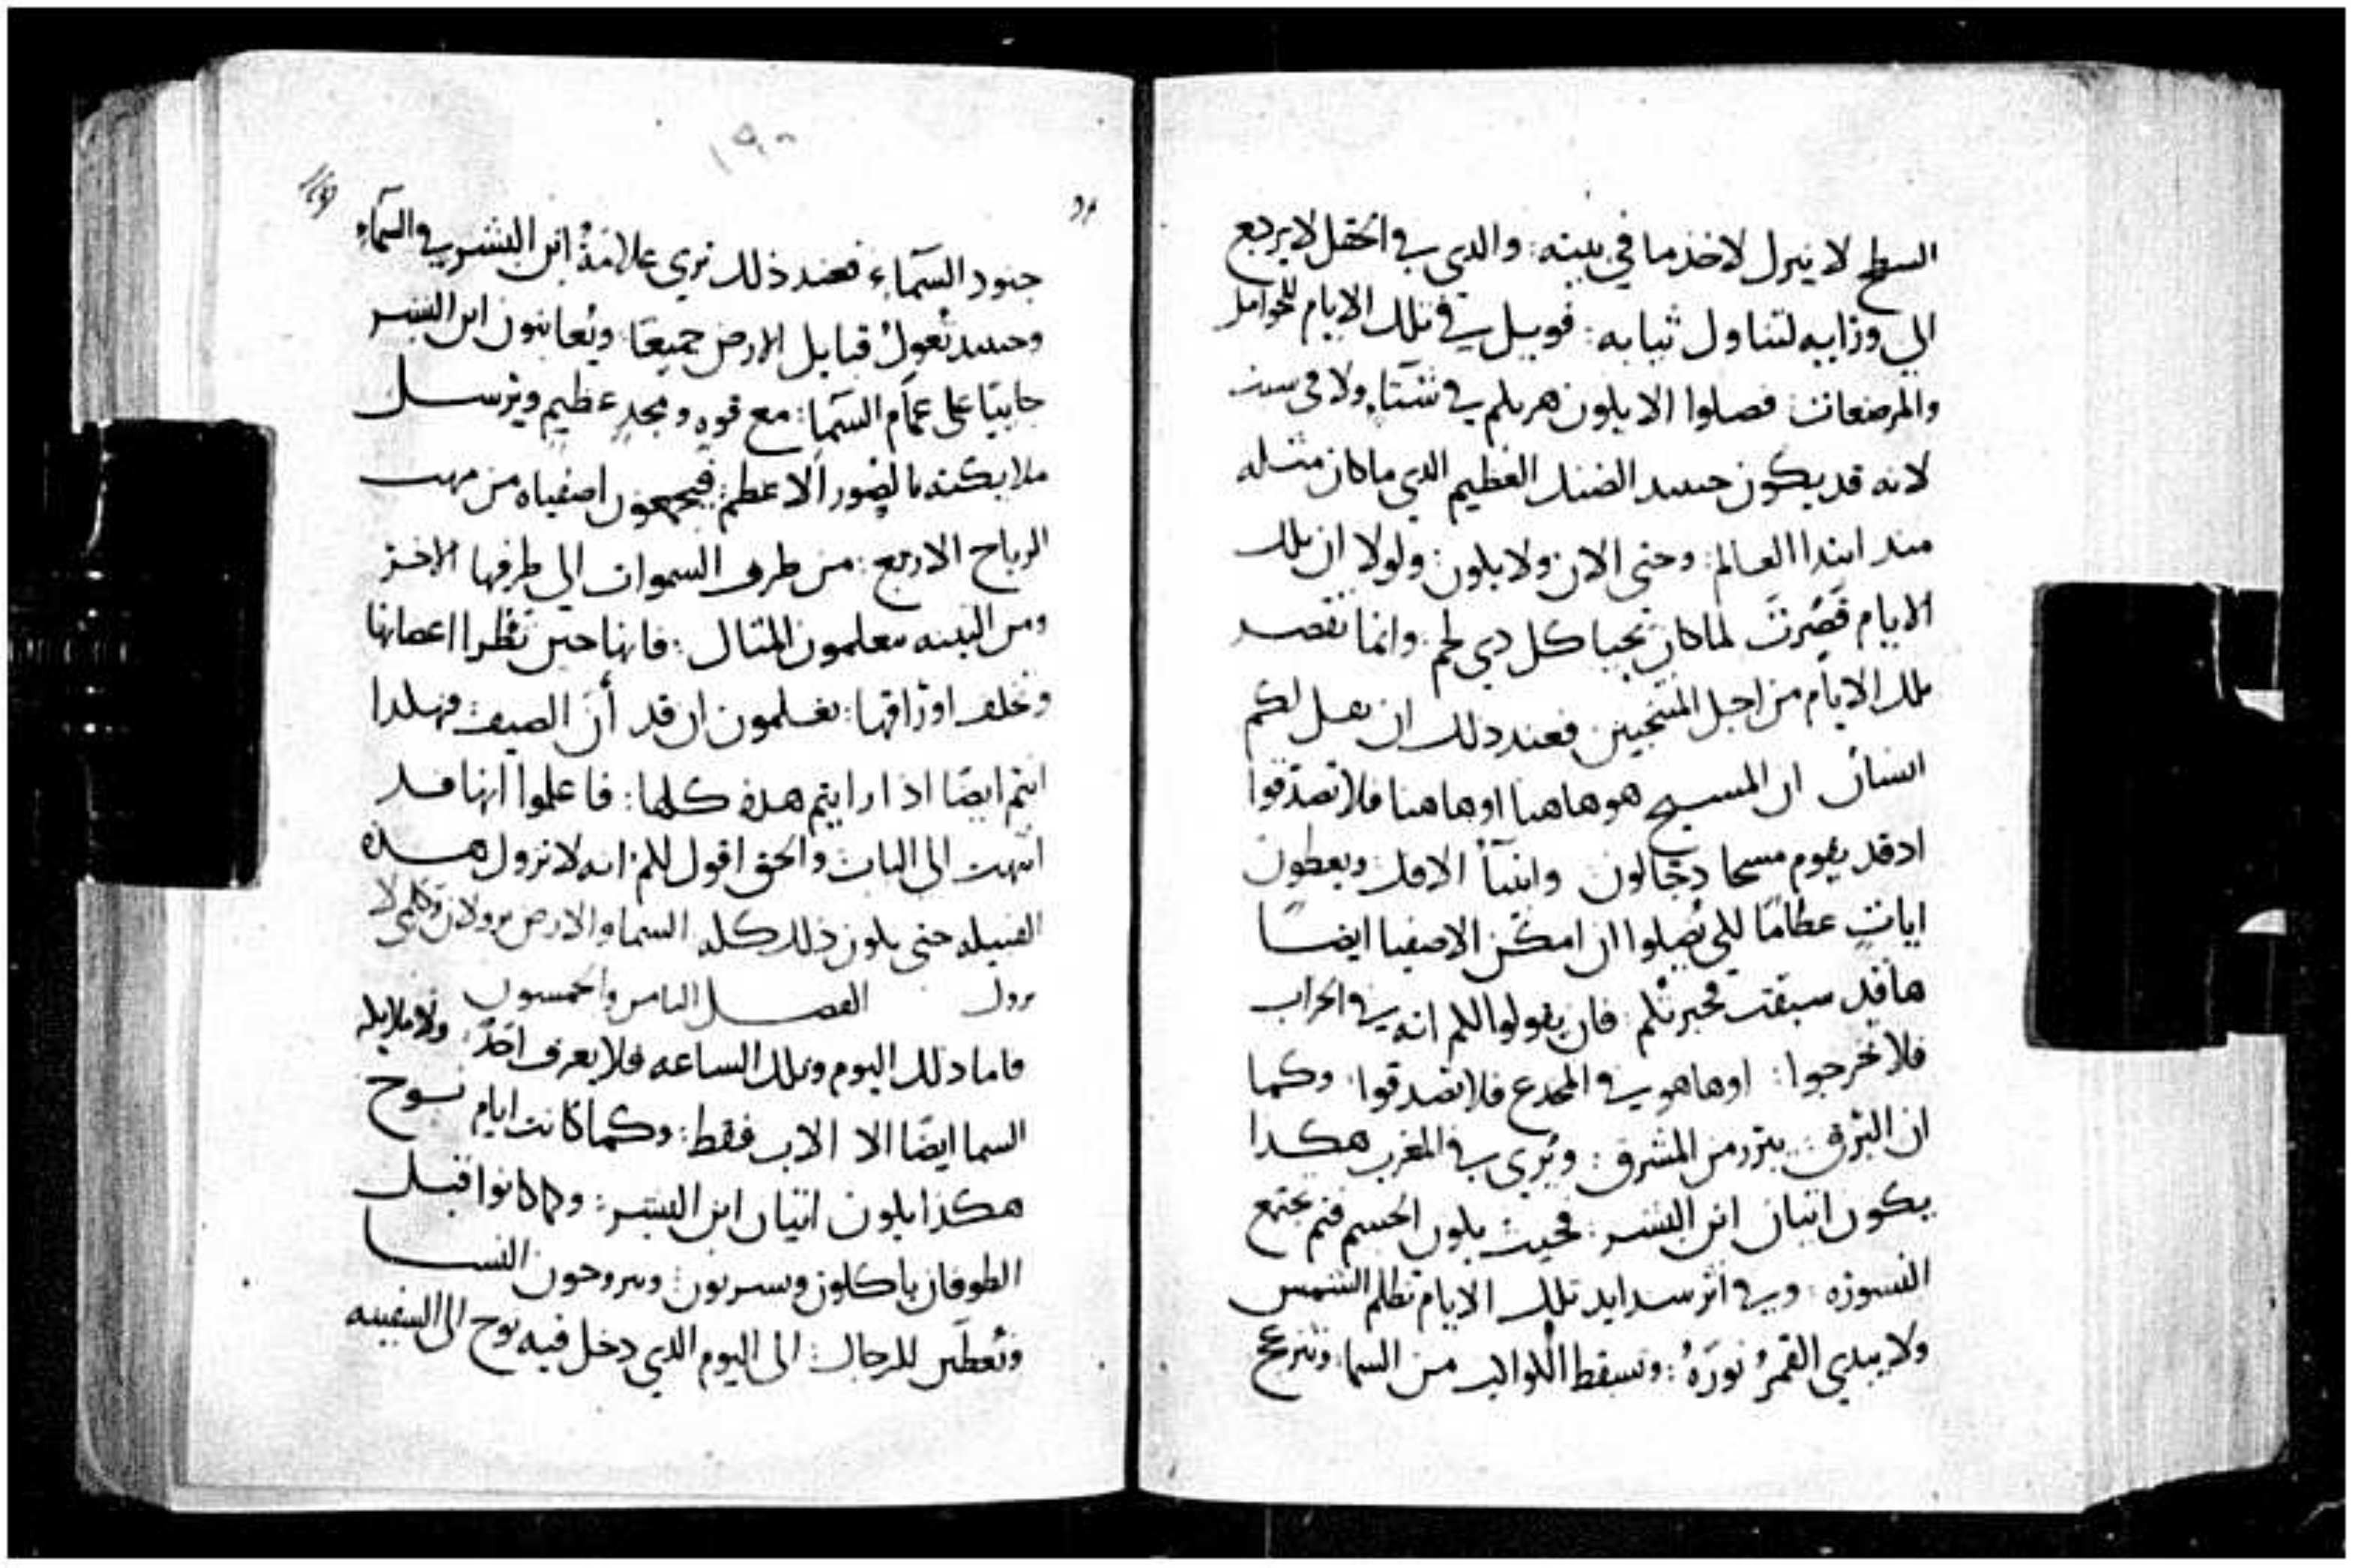 السطح لا ينزل لاخذ ما في بيته: والدي في الحقل لا يرجع
الي وزايه لتناول ثيابه: فويل في تلك الايام للحوامل
والمرضعات فصلوا الا يكون هربكم في شتآءٍ ولا في سبت
لانه قد يكون حينيد الضنك العظيم الدي ما كان مثله
مند ابتدا العالم: وحتي الان ولا يكون: ولولا ان تلك
الايام قصّرت لما كان يحيا كل دي لحم: وانما تقصر
تلك الايام من اجل المنتخبين فعند دلك ان يقل لكم
انسان ان المسيح هو هاهنا او هاهنا فلا تصدقوا
اد قد يقوم مسحا دجالون وانبيآ الافك ويعطون
اياتٍ عظامًا لكي يُضلوا ان امكن الاصفيا ايضا
ها قد سبقت فخبرتكم فان يقولوا لكم انه في الخراب
فلا تخرجوا: او ها هو في المخدع فلا تصدقوا: وكما
ان البرق يبرز من المشرق: ويُري في المغرب هكدا
يكون اتيان ابن البشر: فحيث يكون الجسم فثم تجتمع
النسوره: وفي اثر شدايد تلك الايام تظلم الشمس
ولا يبدي القمرُ نورَهُ: وتسقط الكواكب من السما: وتنزعج
١٩٠
جنود السمآءِ فعند ذلك تري علامةُ ابن البشر في السمآءِ
وحينيد تُعولُ قبايل الارض جميعًا: ويُعاينون ابن البشر
جاييًا على غمام السمآ: مع قوهٍ ومجدٍ عظيم ويرسل
ملايكته بالصور الاعظم: فيجمعون اصفياه من مهب
الرياح الاربع: من طرف السموات الي طرفها الاخر
ومن التينه تعلمون المتال: فانها حين تفطر اغصانها
وتخلف اوراقها: تعلمون ان قد أنَ الصيف فهكدا
انتم ايضا اذا رايتم هده كلها: فاعلموا انها قد
انتهت الى الباب والحق اقول لكم: انه لا تزول هده
القبيله حتى يكون ذلك كله السما والارض يزولان وكلامي لا
يزول الفصل التامن والخمسون
فاما دلك اليوم وتلك الساعه فلا يعرف احدٌ: ولا ملايكه
السما ايضًا الا الاب فقط: وكما كانت ايام نوح
هكذا يكون اتيان ابن البشر: وكما كانوا قبل
الطوفان ياكلون ويشربون: ويتزوجون النسا
وتُعطَين للرجال: الى اليوم الدي دخل فيه نوح الى السفينه